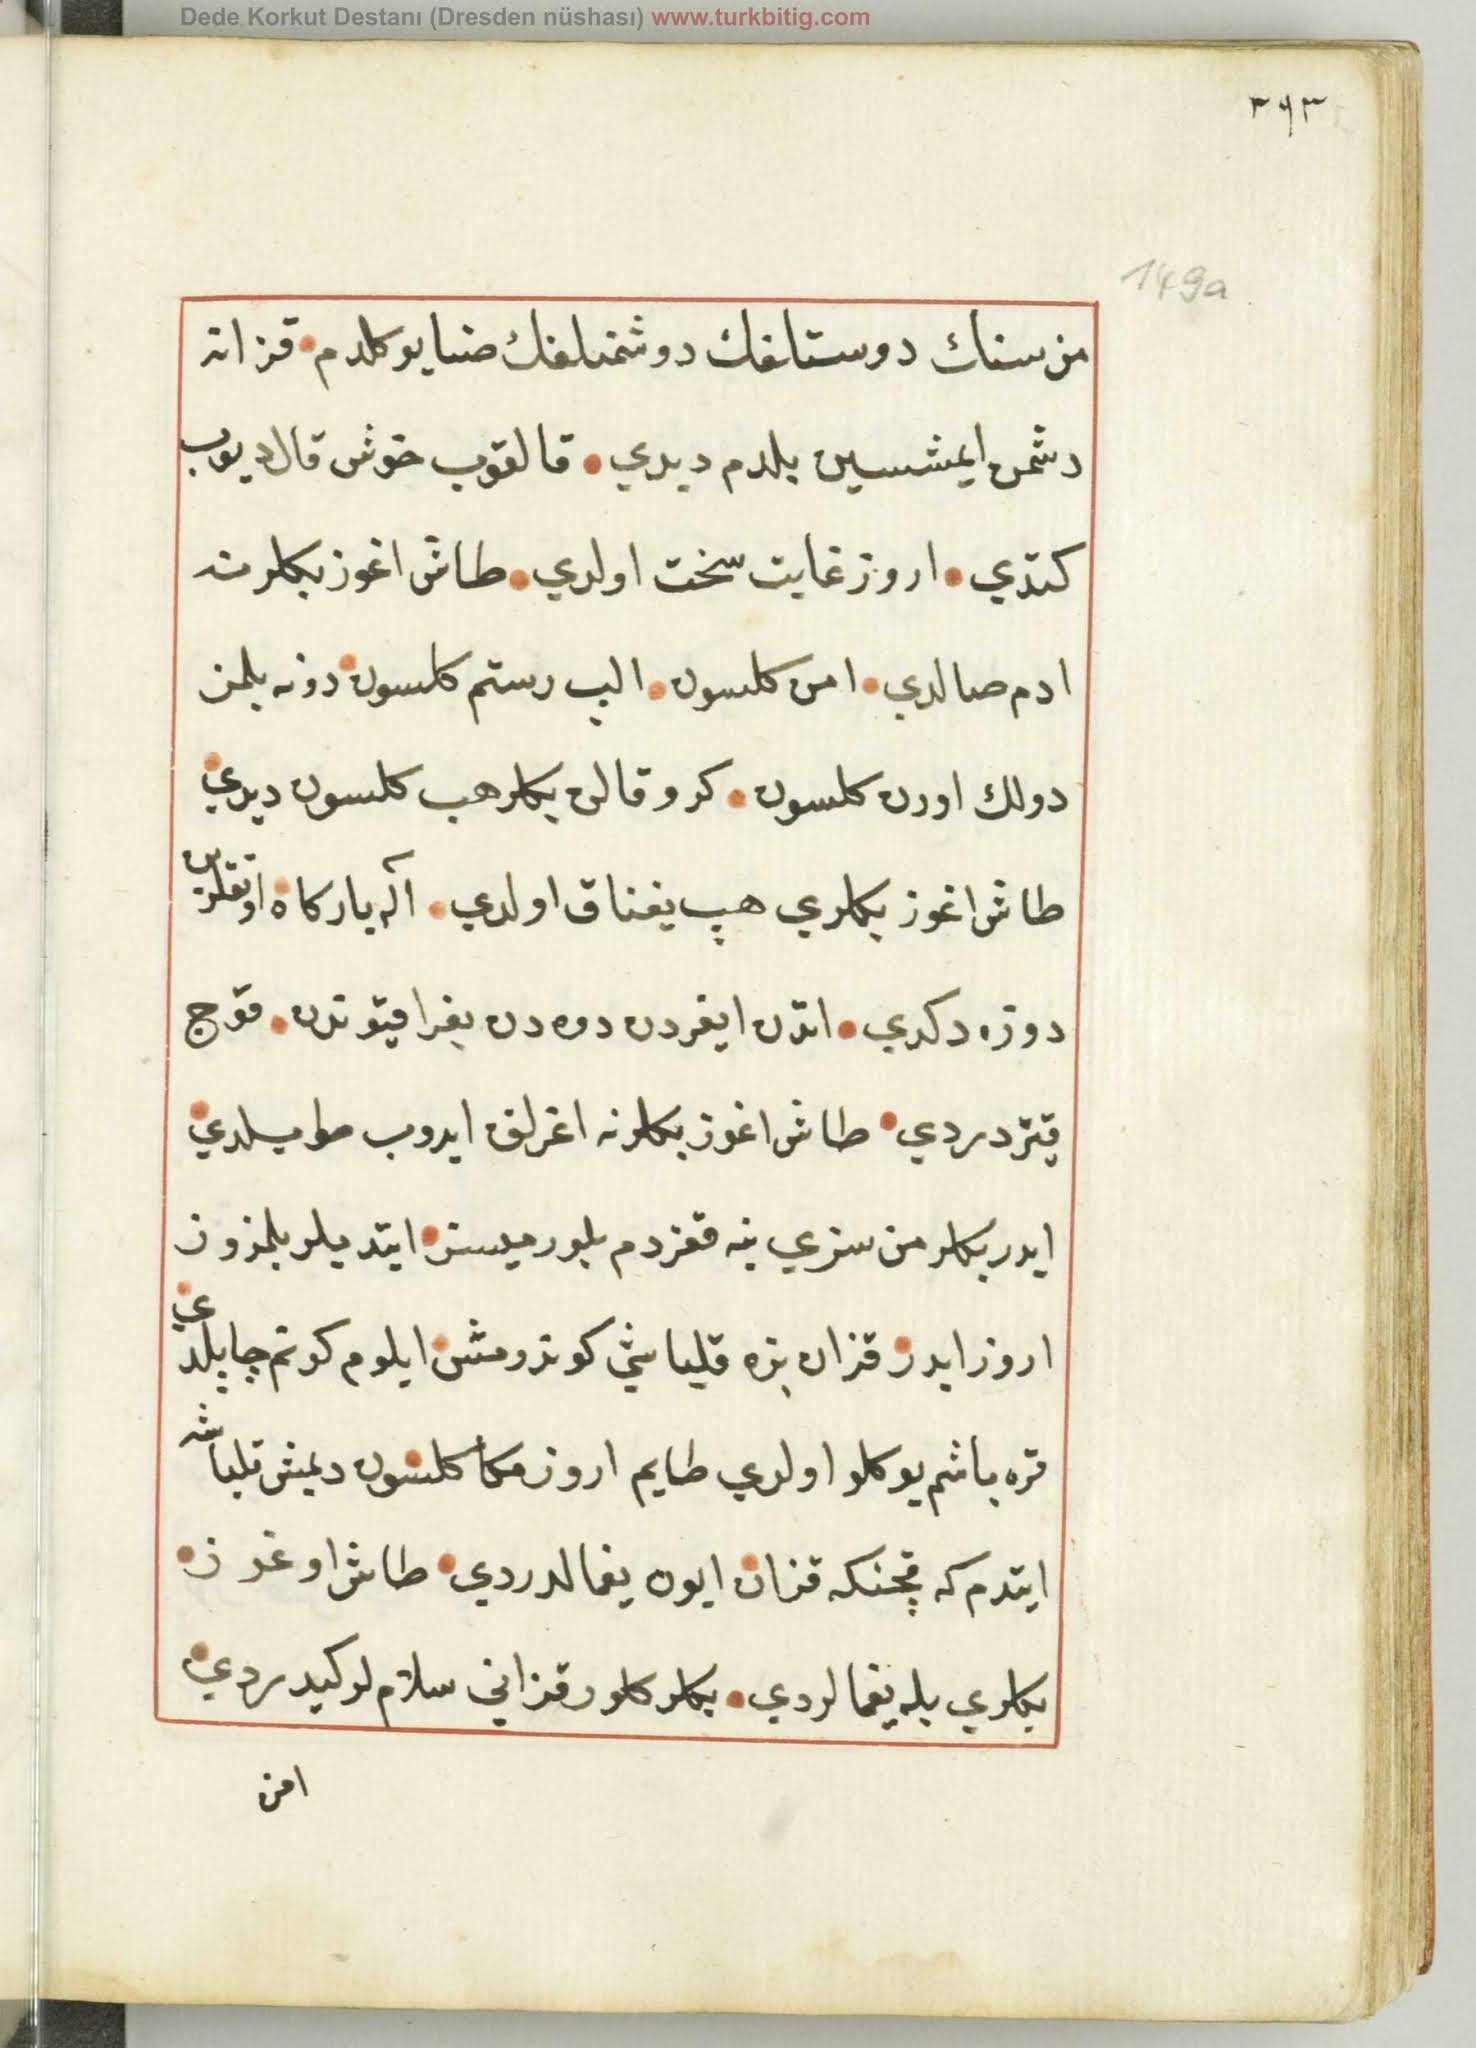 Dede Korkut Destanı (Dresden nüshası) www.turkbitig.com
۲۹۳
149a
من سنك دوستلغك دوشمنلغك صنايو كلدم قزانه
دشمن ايمشسين بلدم ديدي قالقوب خوش قال ديوب
كتدي اروز غايت سخت اولدي طاش اغوز بكلرينه
ادم صالدي امن كلسون الپ رستم كلسون دونه بلمز
دولك اورن كلسون كرو قالن بكلر هب كلسون ديدي
طاش اغوز بكلري هپ يغناق اولدي اله باركاه اوتقلرين
دوزه دكدي اتدن ايغردن دوه دن بغرا قيوندن قوج
قيردردي طاش اغوز بكلرنه اغرلق ايدوب
ايدر بكلر من سزي نيه قغردم بلورميسز ايتديلر بلمزوز
اروز ايدر قزان بزه قليباشي كوندرومش ايلوم كونم چاپلدي
قره باشم بوكلو اولدي طايم اروز مكا كلسون ديمش قلباش
ايتدم كه قچنكه قزان ايون يغمالدردي طاش اوغوز
بكلري بله يغمالردي بكلر كلور قزاني سلاملر كيدردي
امن